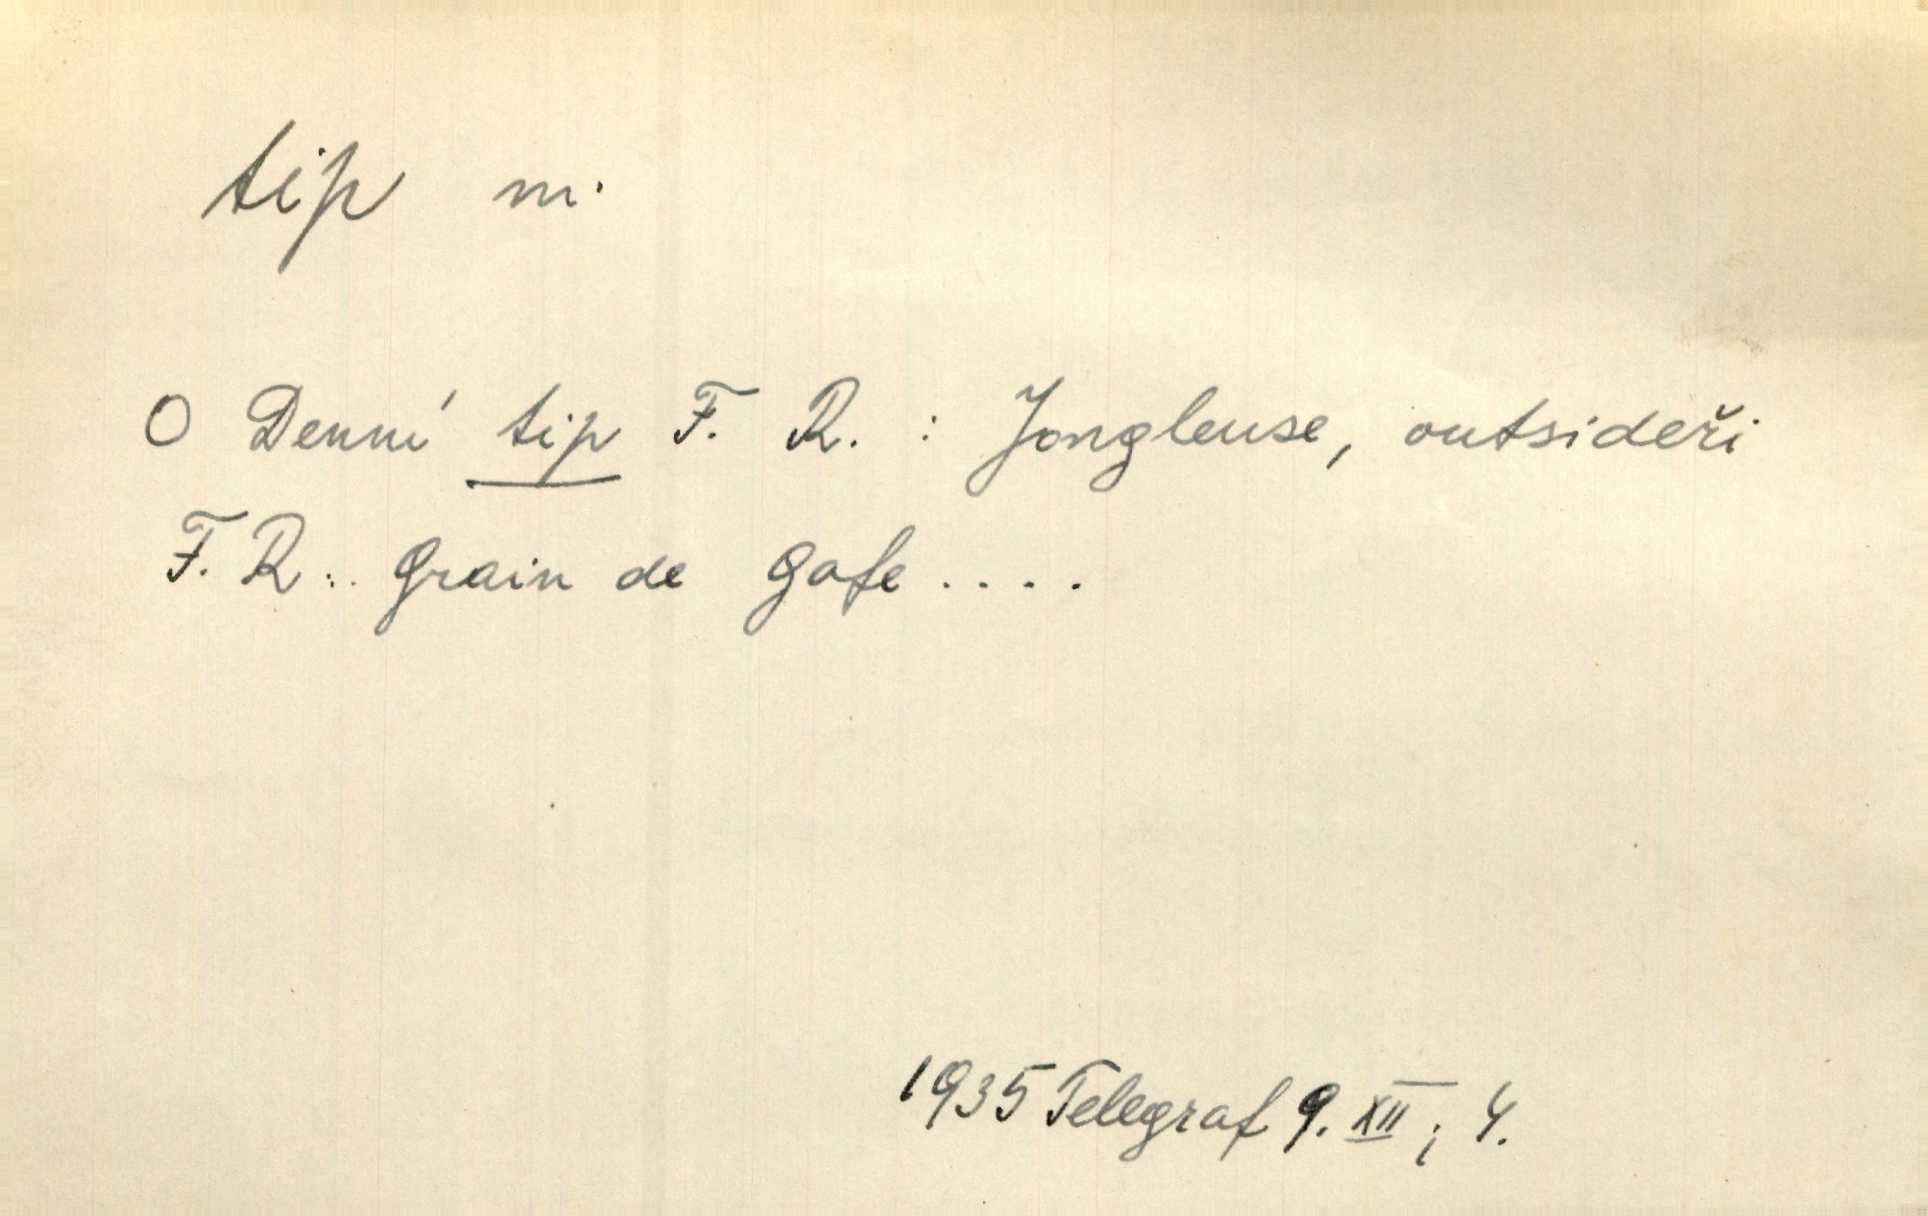 tip m.
O Denní tip F. R. : Jongleuse, outsideři
F. R.. Grain de Gafe....
1935 Telegraf 9. XII ; 4.